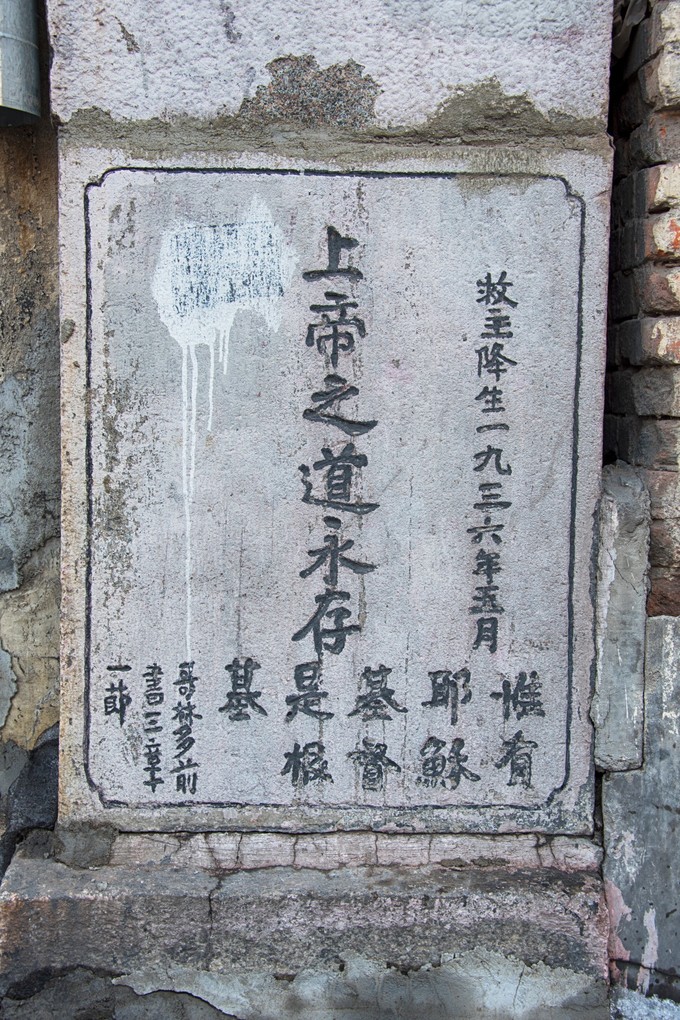 救主降生一九三六年五月
上帝之道永存
惟有
耶穌
基督
是根
基
哥林多前
書三章十
一節